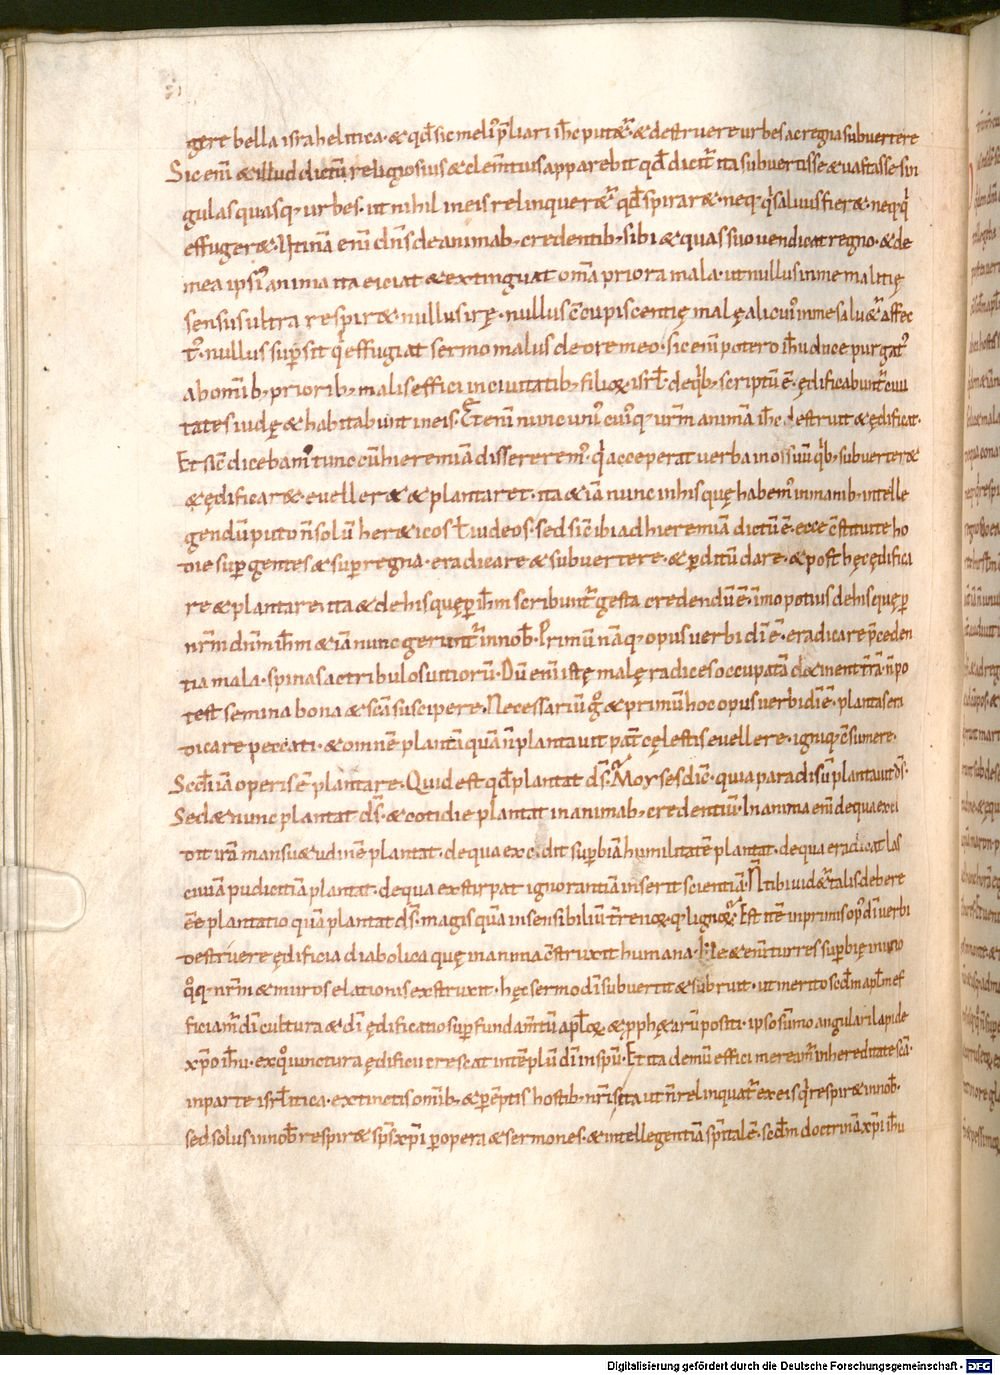 gere bella israhelitica · & qđ sic meli᷒ p̄liari ih̄c putet᷑ · & destruere urbes ac regna subuertere
Sic eni᷒ & illud dictū religiosius & clem̄tius apparebit qđ dicit᷑ ita subuertisse & uastasse sin
gulas quasq; urbes · ut nihil in eis relinqueret᷑ qđ spiraret · neq; q̇ saluus fieret · neq; q̇
effugeret · Utinā eni᷒ dn̄s de animab; credentib; sibi & quas suo uendicat regno · & de
mea ipsi᷒ anima ita eiciat & extinguat om̄a priora mala · ut nullus in me malitię
sensus ultra respiret · nullus irę · nullus c̄cupiscentię malę alicui᷒ in me saluet᷑ affec
t᷒ · nullus sup̄sit q̇ effugiat sermo malus de ore meo · sic eni᷒ potero ih̄u duce purgat᷒
ab om̄ib; priorib; malis effici in ciuitatib; filioꝝ · isrł · de q̇b; scriptū ē · ędificabunt᷑ ciui
tates iudę & habitabunt in eis · Etenī nunc uni᷒ cui᷒q; ur̄m animā ih̄c destruit & ędificat ·
Et sic̄ dicebam᷒ tunc cū hieremiā dissererem᷒ · q̇ acceperat uerba in os suū q̇b; subuerteret
& ędificaret · euelleret & plantaret · ita & iā nunc in his quę habem᷒ in manib; intelle
gendū puto n̄ solū hereticos ł iudeos · sed sic̄ ibi ad hieremiā dictū ē · ecce c̄stitui te ho
die sup̄ gentes & sup̄ regna · eradicare & subuertere · & p̄ditū dare · & post hęc ędifica
re & plantare · ita & de his quę p̄ ih̄m scribunt᷑ gesta credendū ē · īmo potius de his quę p̄
nr̄m dn̄m ih̄m & iā nunc gerunt᷑ in nob᷒ · Primū nāq; opus uerbi dī ē · eradicare p̄ceden
tia mala · spinas ac tribulos uitiorū · Dū eni᷒ istę malę radices occupatā detinent t̄rā · n̄ po
test semina bona & sc̄a suscipere · Necessariū g̊ & primū hoc opus uerbi dī ē · planta seri
dicare peccati · & omnē plantā quā n̄ plantauit pat̄ cęlestis euellere · igniq; c̄sumere ·
Scd̄ iā operis ē plantare · Quid est qđ plantat ds̄ · Moyses dic̄ · quia paradisū plantauit ds̄ ·
Sed & nunc plantat ds̄ · & cotidie plantat in animab; credentiū · In anima eni᷒ de qua exci
dit irā mansuetudinē plantat · de qua excidit sup̄biā humilitatē plantat · de qua eradicat las
ciuiā pudicitiā plantat · de qua exstirpat ignorantiā inserit scientiā · N̄ tibi uidet᷑ talis debere
ēē plantatio quā plantat ds̄ · magis quā insensibiliū t̄renoꝝ · q; lignoꝝ · Est itē in primis op᷒ dī uerbi
destruere ędificia diabolica quę in anima c̄struxit humana · Ille & eni᷒ turres sup̄bię in uno
q̊q; nr̄m & muros elationis exstruxit · hęc sermo dī subuertit & subruit · ut merito scd̄m apl̄m ef
ficiam᷒ dī cultura & dī ędificatio sup̄ fundam̄tū apl̄oꝝ & pphetarū positi · ipso sūmo angulari lapide
xp̄o ih̄u · ex q̊ iunctura ędificii crescat in tēplū dī in spū · Et ita demū effici mereamur in hereditate sc̄a ·
in parte isrł itica · extinctis omīb; & p̄ēptis hostib; nr̄is · ita ut n̄ relinquat᷑ ex eis q̇ respiret in nob᷒ ·
sed solus in nob᷒ respiret sps̄ xp̄i p̄ opera & sermones · & intellegentiā sp̄italē · scd̄m doctrinā xp̄i ih̄u
Digitalisierung gefördert durch die Deutsche Forschungsgemeinschaft - DFG